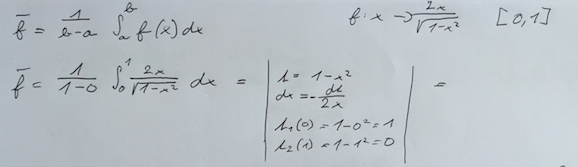 f̄ = 1/(b-a) ∫_a^b f(x) dx    f: x → 2x/√(1-x²)    [0,1]
f̄ = 1/(1-0) ∫_0^1 2x/√(1-x²) dx = | t = 1-x² | =
dx = -dt/2x
t₁(0) = 1-0² = 1
t₂(1) = 1-1² = 0